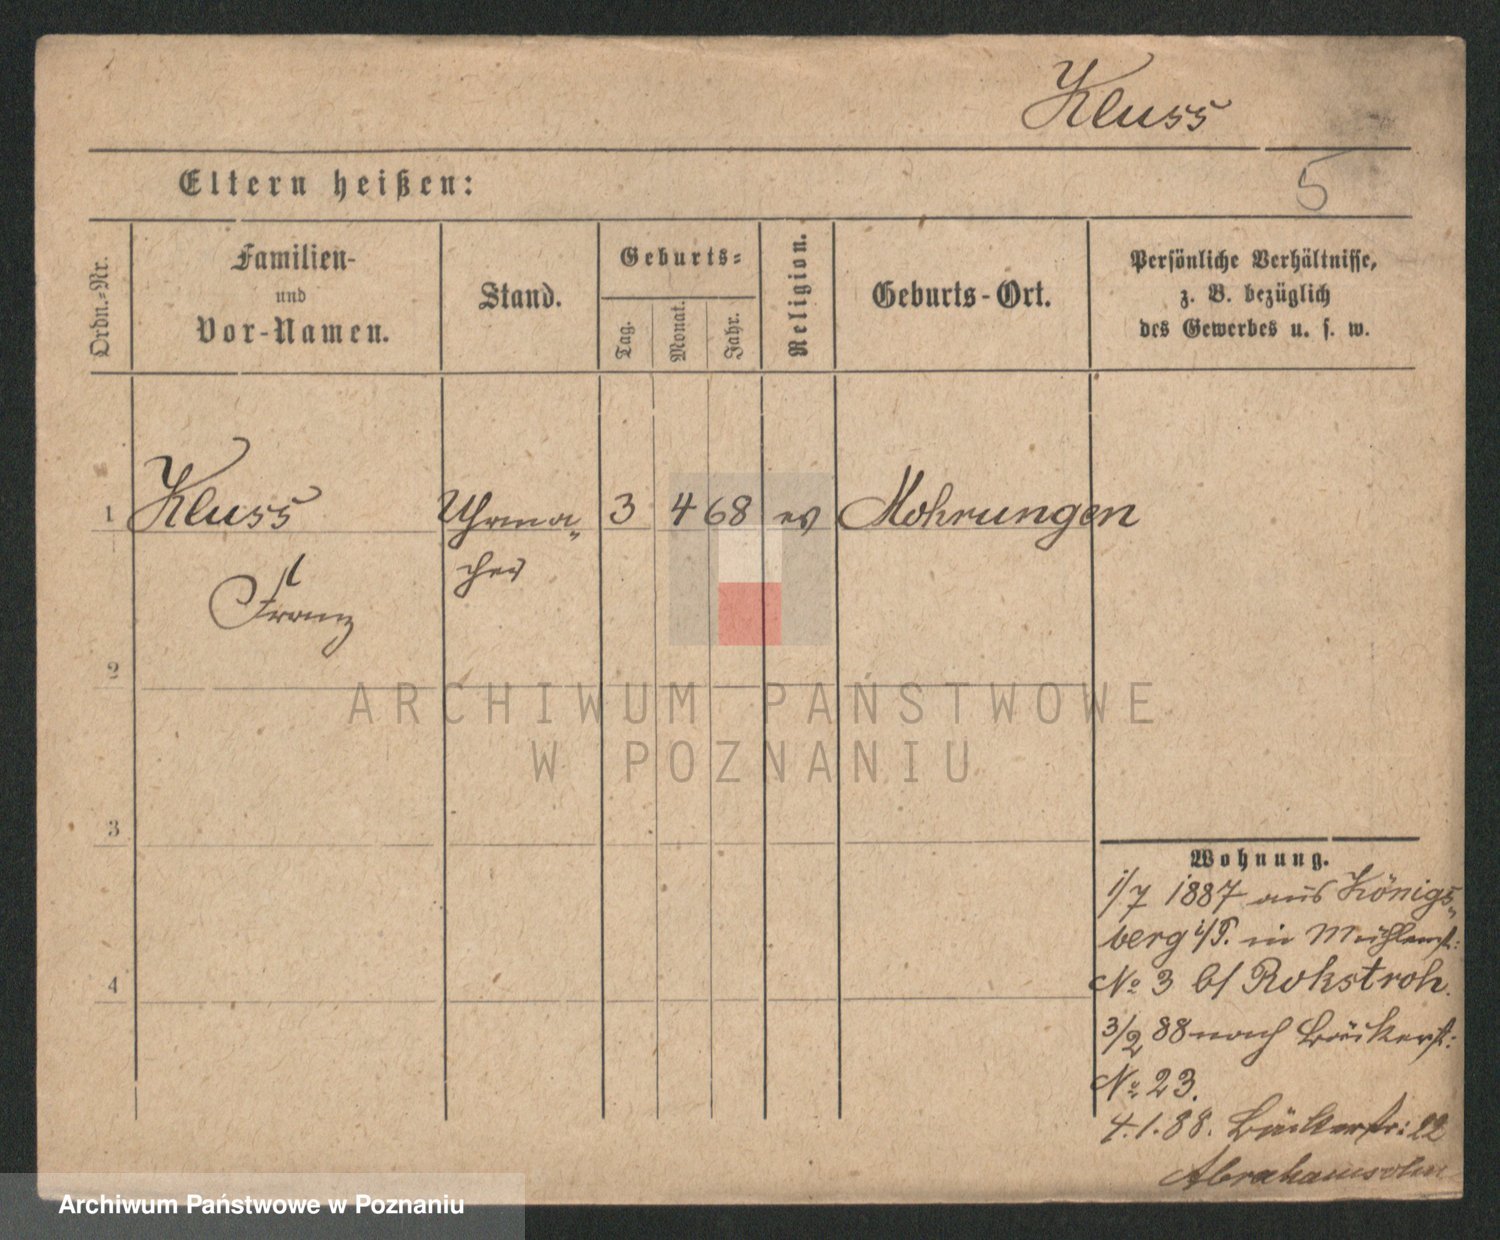 Kluss
5
Eltern heißen:
Ordn.-Nr.
Familien-
und
Vor-Namen.
Stand.
Geburts-
Tag.
Monat.
Jahr.
Religion.
Geburts-Ort.
Persönliche Verhältnisse,
z. B. bezüglich
des Gewerbes u. s. w.
1 Kluss Uhrma- 3 4 68 ev Mohrungen
cher
Franz
2
ARCHIWUM PAŃSTWOWE
W POZNANIU
3
4
Wohnung.
1/7 1887 aus Königs-
berg i/P. in Mühlenst:
No 3 b/ Rokstroh.
3/2 88 nach Bäckerst:
No 23.
4.1.88. Bäckerstr: 22
Abrahamsohn
Archiwum Państwowe w Poznaniu